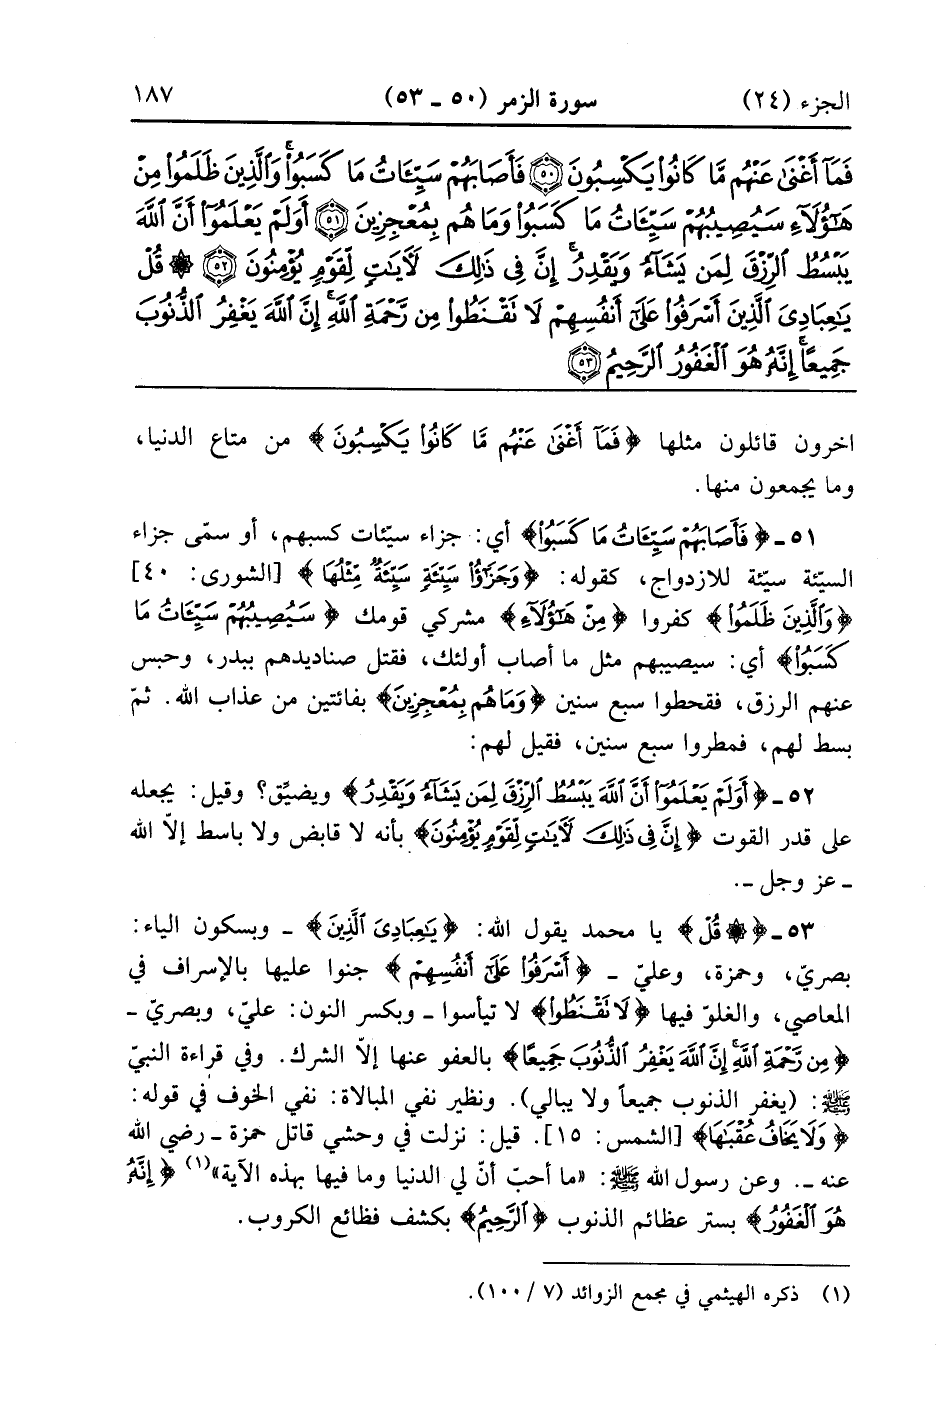 الجزء (٢٤) سورة الزمر (٥٠ ـ ٥٣) ١٨٧
فَمَآ أَغْنَىٰ عَنْهُم مَّا كَانُوا۟ يَكْسِبُونَ ۝٥٠ فَأَصَابَهُمْ سَيِّـَٔاتُ مَا كَسَبُوا۟ۚ وَٱلَّذِينَ ظَلَمُوا۟ مِنْ
هَٰٓؤُلَآءِ سَيُصِيبُهُمْ سَيِّـَٔاتُ مَا كَسَبُوا۟ وَمَا هُم بِمُعْجِزِينَ ۝٥١ أَوَلَمْ يَعْلَمُوٓا۟ أَنَّ ٱللَّهَ
يَبْسُطُ ٱلرِّزْقَ لِمَن يَشَآءُ وَيَقْدِرُۚ إِنَّ فِى ذَٰلِكَ لَـَٔايَٰتٍ لِّقَوْمٍ يُؤْمِنُونَ ۝٥٢ ۞ قُلْ
يَٰعِبَادِىَ ٱلَّذِينَ أَسْرَفُوا۟ عَلَىٰٓ أَنفُسِهِمْ لَا تَقْنَطُوا۟ مِن رَّحْمَةِ ٱللَّهِۚ إِنَّ ٱللَّهَ يَغْفِرُ ٱلذُّنُوبَ
جَمِيعًاۚ إِنَّهُۥ هُوَ ٱلْغَفُورُ ٱلرَّحِيمُ ۝٥٣
اخرون قائلون مثلها ﴿فَمَآ أَغْنَىٰ عَنْهُم مَّا كَانُوا۟ يَكْسِبُونَ﴾ من متاع الدنيا،
وما يجمعون منها.
٥١ ـ ﴿فَأَصَابَهُمْ سَيِّـَٔاتُ مَا كَسَبُوا۟﴾ أي: جزاء سيّئات كسبهم، أو سمّى جزاء
السيّئة سيّئة للازدواج، كقوله: ﴿وَجَزَٰٓؤُا۟ سَيِّئَةٍ سَيِّئَةٌ مِّثْلُهَا﴾ [الشورى: ٤٠]
﴿وَٱلَّذِينَ ظَلَمُوا۟﴾ كفروا ﴿مِنْ هَٰٓؤُلَآءِ﴾ مشركي قومك ﴿سَيُصِيبُهُمْ سَيِّـَٔاتُ مَا
كَسَبُوا۟﴾ أي: سيصيبهم مثل ما أصاب أولئك، فقتل صناديدهم ببدر، وحبس
عنهم الرزق، فقحطوا سبع سنين ﴿وَمَا هُم بِمُعْجِزِينَ﴾ بفائتين من عذاب الله. ثمّ
بسط لهم، فمطروا سبع سنين، فقيل لهم:
٥٢ ـ ﴿أَوَلَمْ يَعْلَمُوٓا۟ أَنَّ ٱللَّهَ يَبْسُطُ ٱلرِّزْقَ لِمَن يَشَآءُ وَيَقْدِرُ﴾ ويضيّق؟ وقيل: يجعله
على قدر القوت ﴿إِنَّ فِى ذَٰلِكَ لَـَٔايَٰتٍ لِّقَوْمٍ يُؤْمِنُونَ﴾ بأنه لا قابض ولا باسط إلّا الله
ـ عز وجل ـ.
٥٣ ـ ﴿۞ قُلْ﴾ يا محمد يقول الله: ﴿يَٰعِبَادِىَ ٱلَّذِينَ﴾ ـ وبسكون الياء:
بصريّ، وحمزة، وعليّ ـ ﴿أَسْرَفُوا۟ عَلَىٰٓ أَنفُسِهِمْ﴾ جنوا عليها بالإسراف في
المعاصي، والغلوّ فيها ﴿لَا تَقْنَطُوا۟﴾ لا تيأسوا ـ وبكسر النون: عليّ، وبصريّ ـ
﴿مِن رَّحْمَةِ ٱللَّهِۚ إِنَّ ٱللَّهَ يَغْفِرُ ٱلذُّنُوبَ جَمِيعًا﴾ بالعفو عنها إلّا الشرك. وفي قراءة النبيّ
ﷺ: (يغفر الذنوب جميعاً ولا يبالي). ونظير نفي المبالاة: نفي الخوف في قوله:
﴿وَلَا يَخَافُ عُقْبَٰهَا﴾ [الشمس: ١٥]. قيل: نزلت في وحشي قاتل حمزة ـ رضي الله
عنه ـ. وعن رسول الله ﷺ: «ما أحبّ أنّ لي الدنيا وما فيها بهذه الآية»(١) ﴿إِنَّهُۥ
هُوَ ٱلْغَفُورُ﴾ بستر عظائم الذنوب ﴿ٱلرَّحِيمُ﴾ بكشف فظائع الكروب.
(١) ذكره الهيثمي في مجمع الزوائد (٧ / ١٠٠).